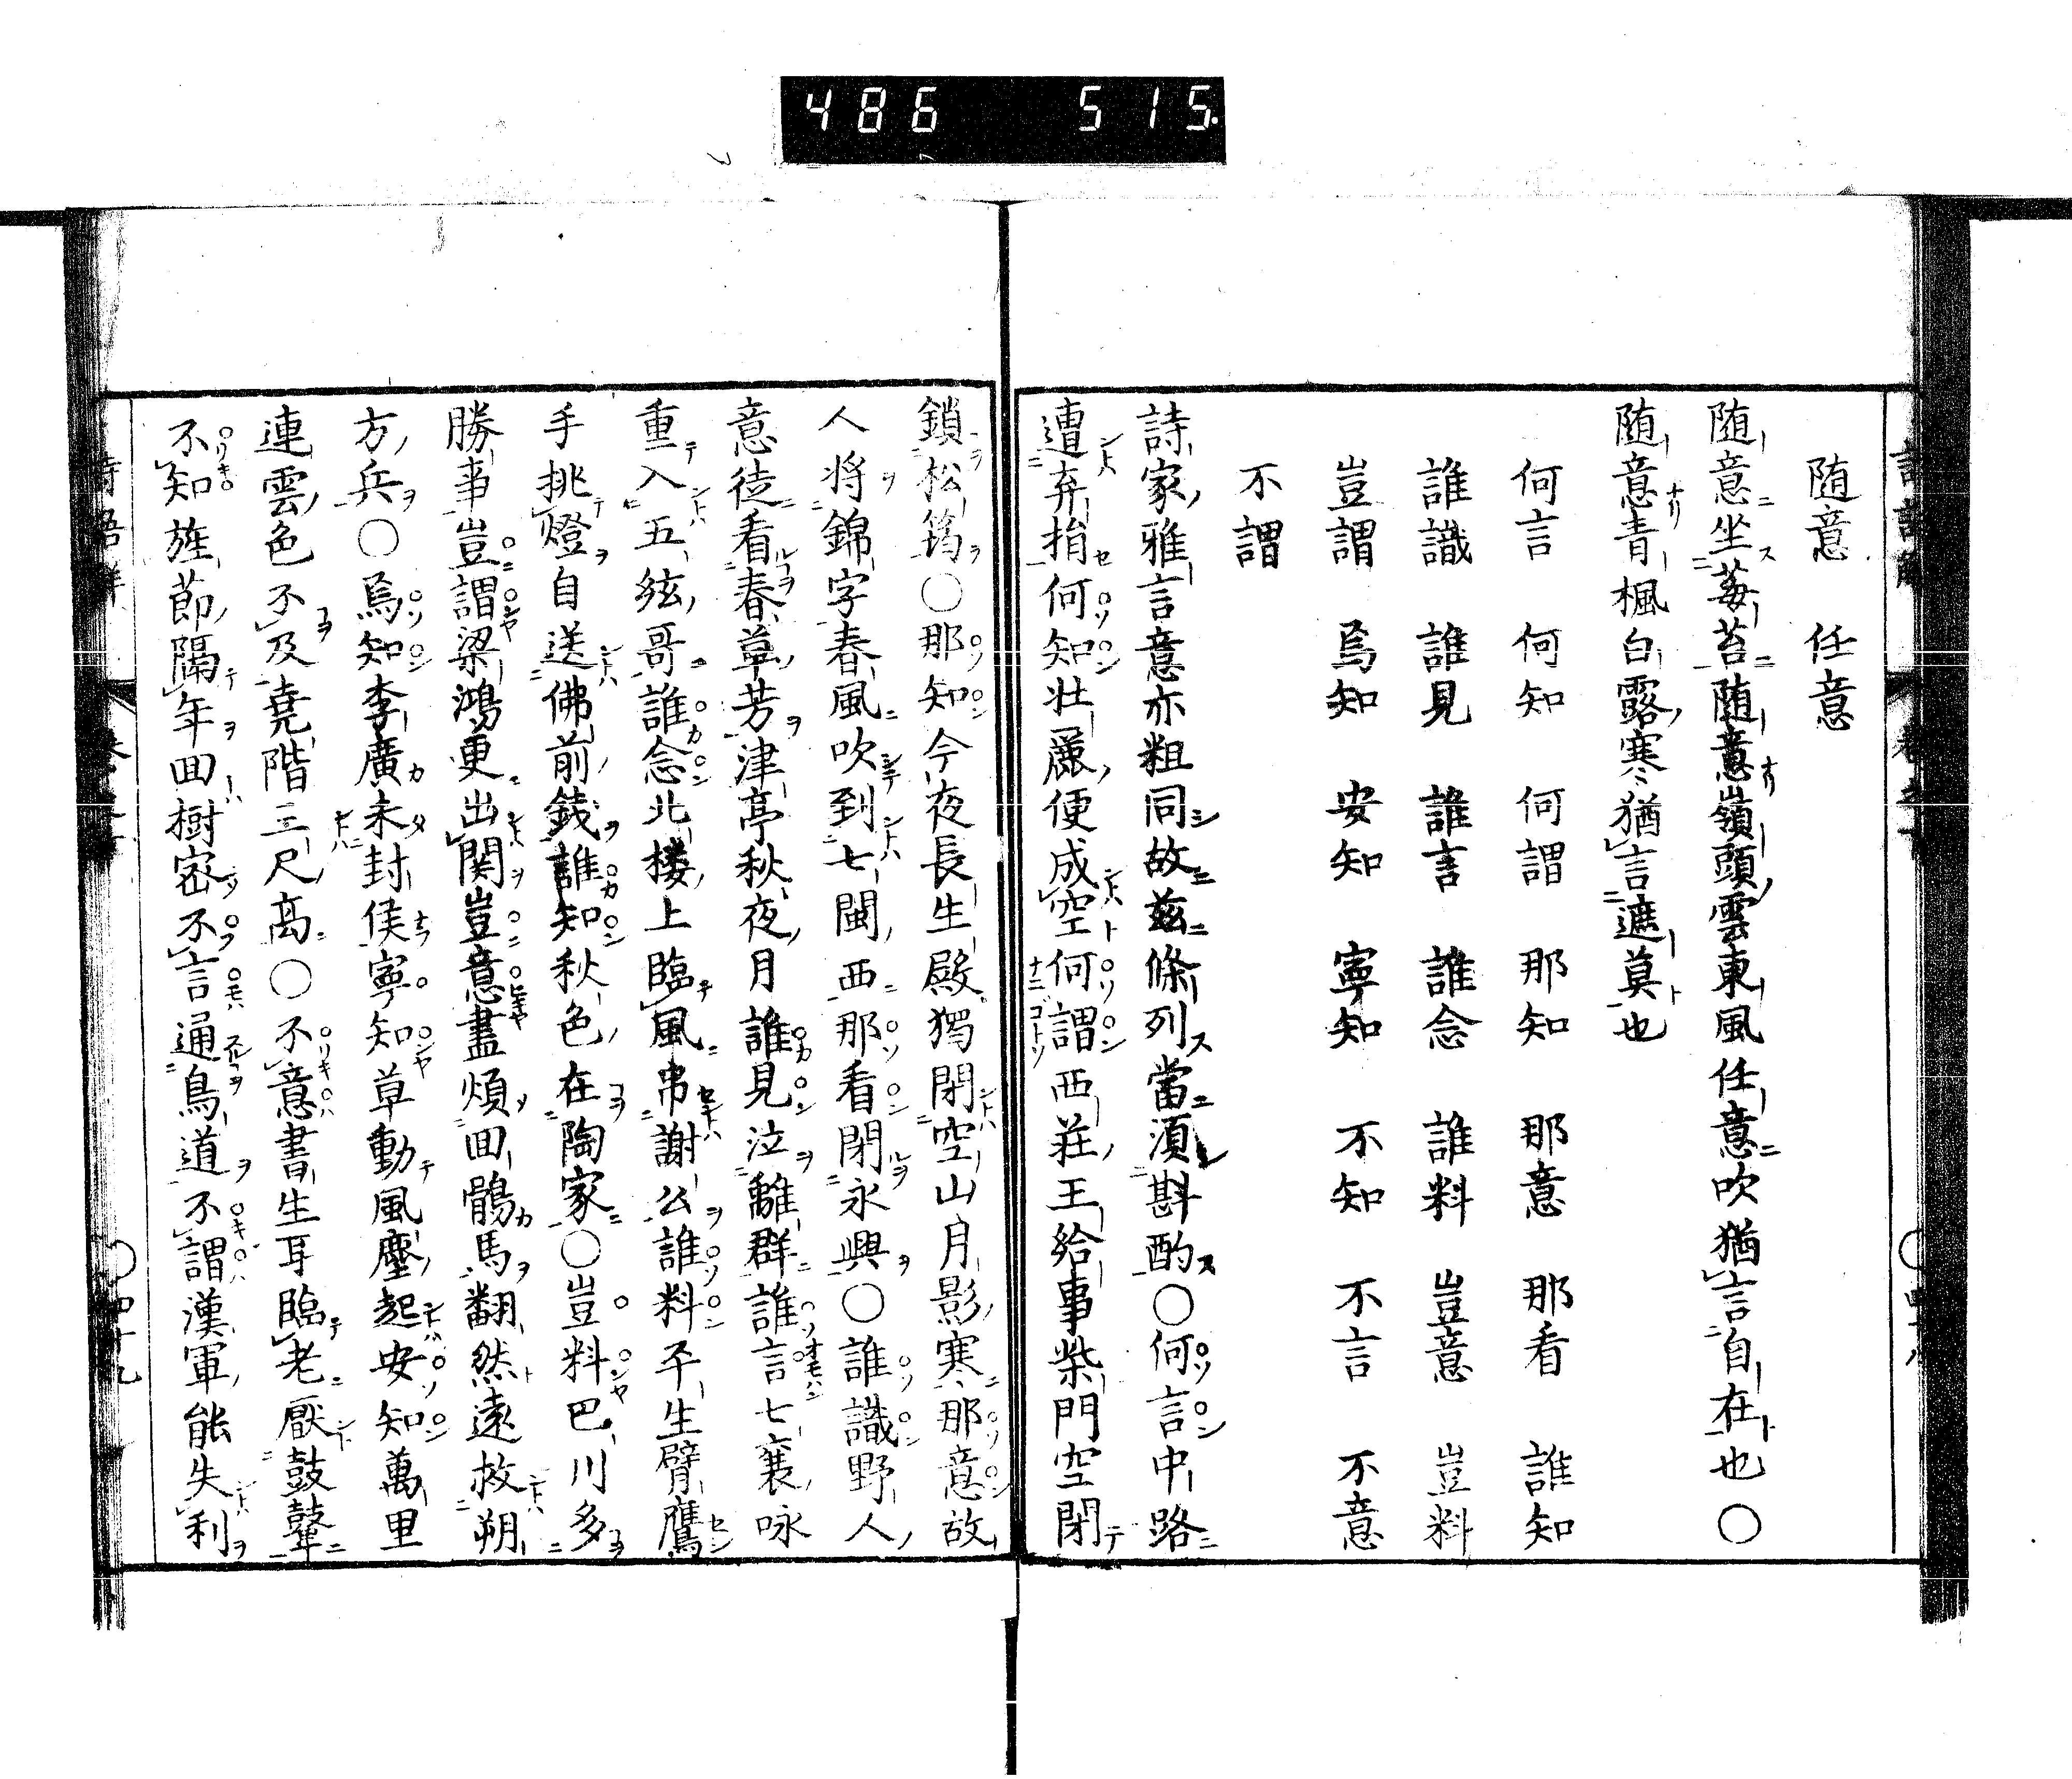 486 515.
随意　任意
随意坐莓苔随意嶺頭雲東風任意吹猶言自在也〇
随意青楓白露寒猶言遮莫也
何言　何知　何謂　那知　那意　那看　誰知
誰識　誰見　誰言　誰念　誰料　豈意　豈料
豈謂　烏知　安知　寧知　不知　不言　不意
不謂
詩家雅言意亦粗同故茲條列當須斟酌〇何言中路
遭弃捐何知壮麗便成空何謂西荘王給事柴門空閉
鎖松筠〇那知今夜長生殿獨閉空山月影寒那意故
人将錦字春風吹到七閩西那看閉永興〇誰識野人
意徒看春草芳津亭秋夜月誰見泣離群誰言七襄咏
重入五絃哥誰念北楼上臨風弔謝公誰料平生臂鷹
手挑燈自送佛前錢誰知秋色在陶家〇豈料巴川多
勝事豈謂梁鴻更出関豈意盡煩回鶻馬翻然遠救朔
方兵〇烏知李廣未封侯寧知草動風塵起安知萬里
連雲色不及堯階三尺高〇不意書生耳臨老厭鼓鼙
不知旌節隔年回樹密不言通鳥道不謂漢軍能失利